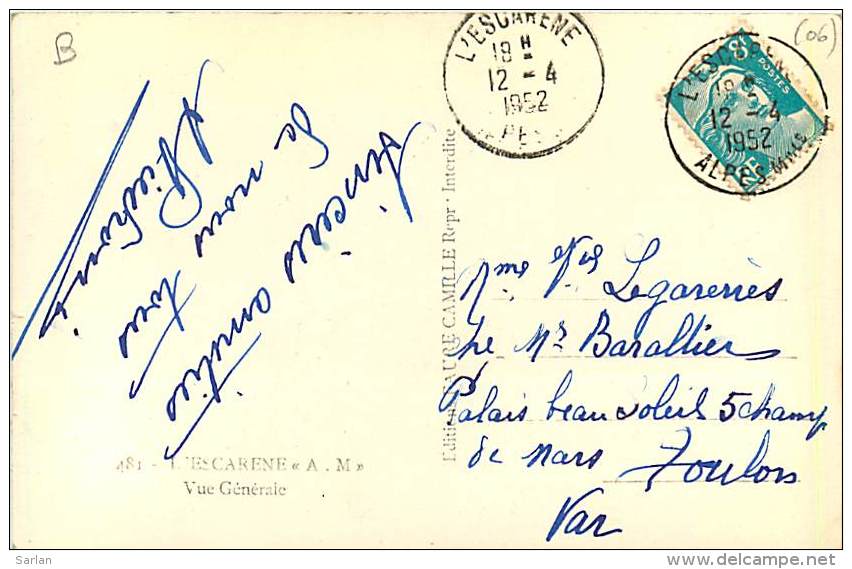 B
(06)
L'ESCARENE
18 H
12 - 4
1952
L'ESCARENE
18 H
12 - 4
1952
ALPES-Mmes
POSTES
Sincères amitiés
de nous tous
Mme Vve Legarerriès
che Mr Barallier
Palais beau soleil 5 champ
de Mars Toulon
Var
Edition FAURE CAMILLE Repr. Interdite
481 - L'ESCARENE « A. M »
Vue Générale
Sarlan
www.delcampe.net